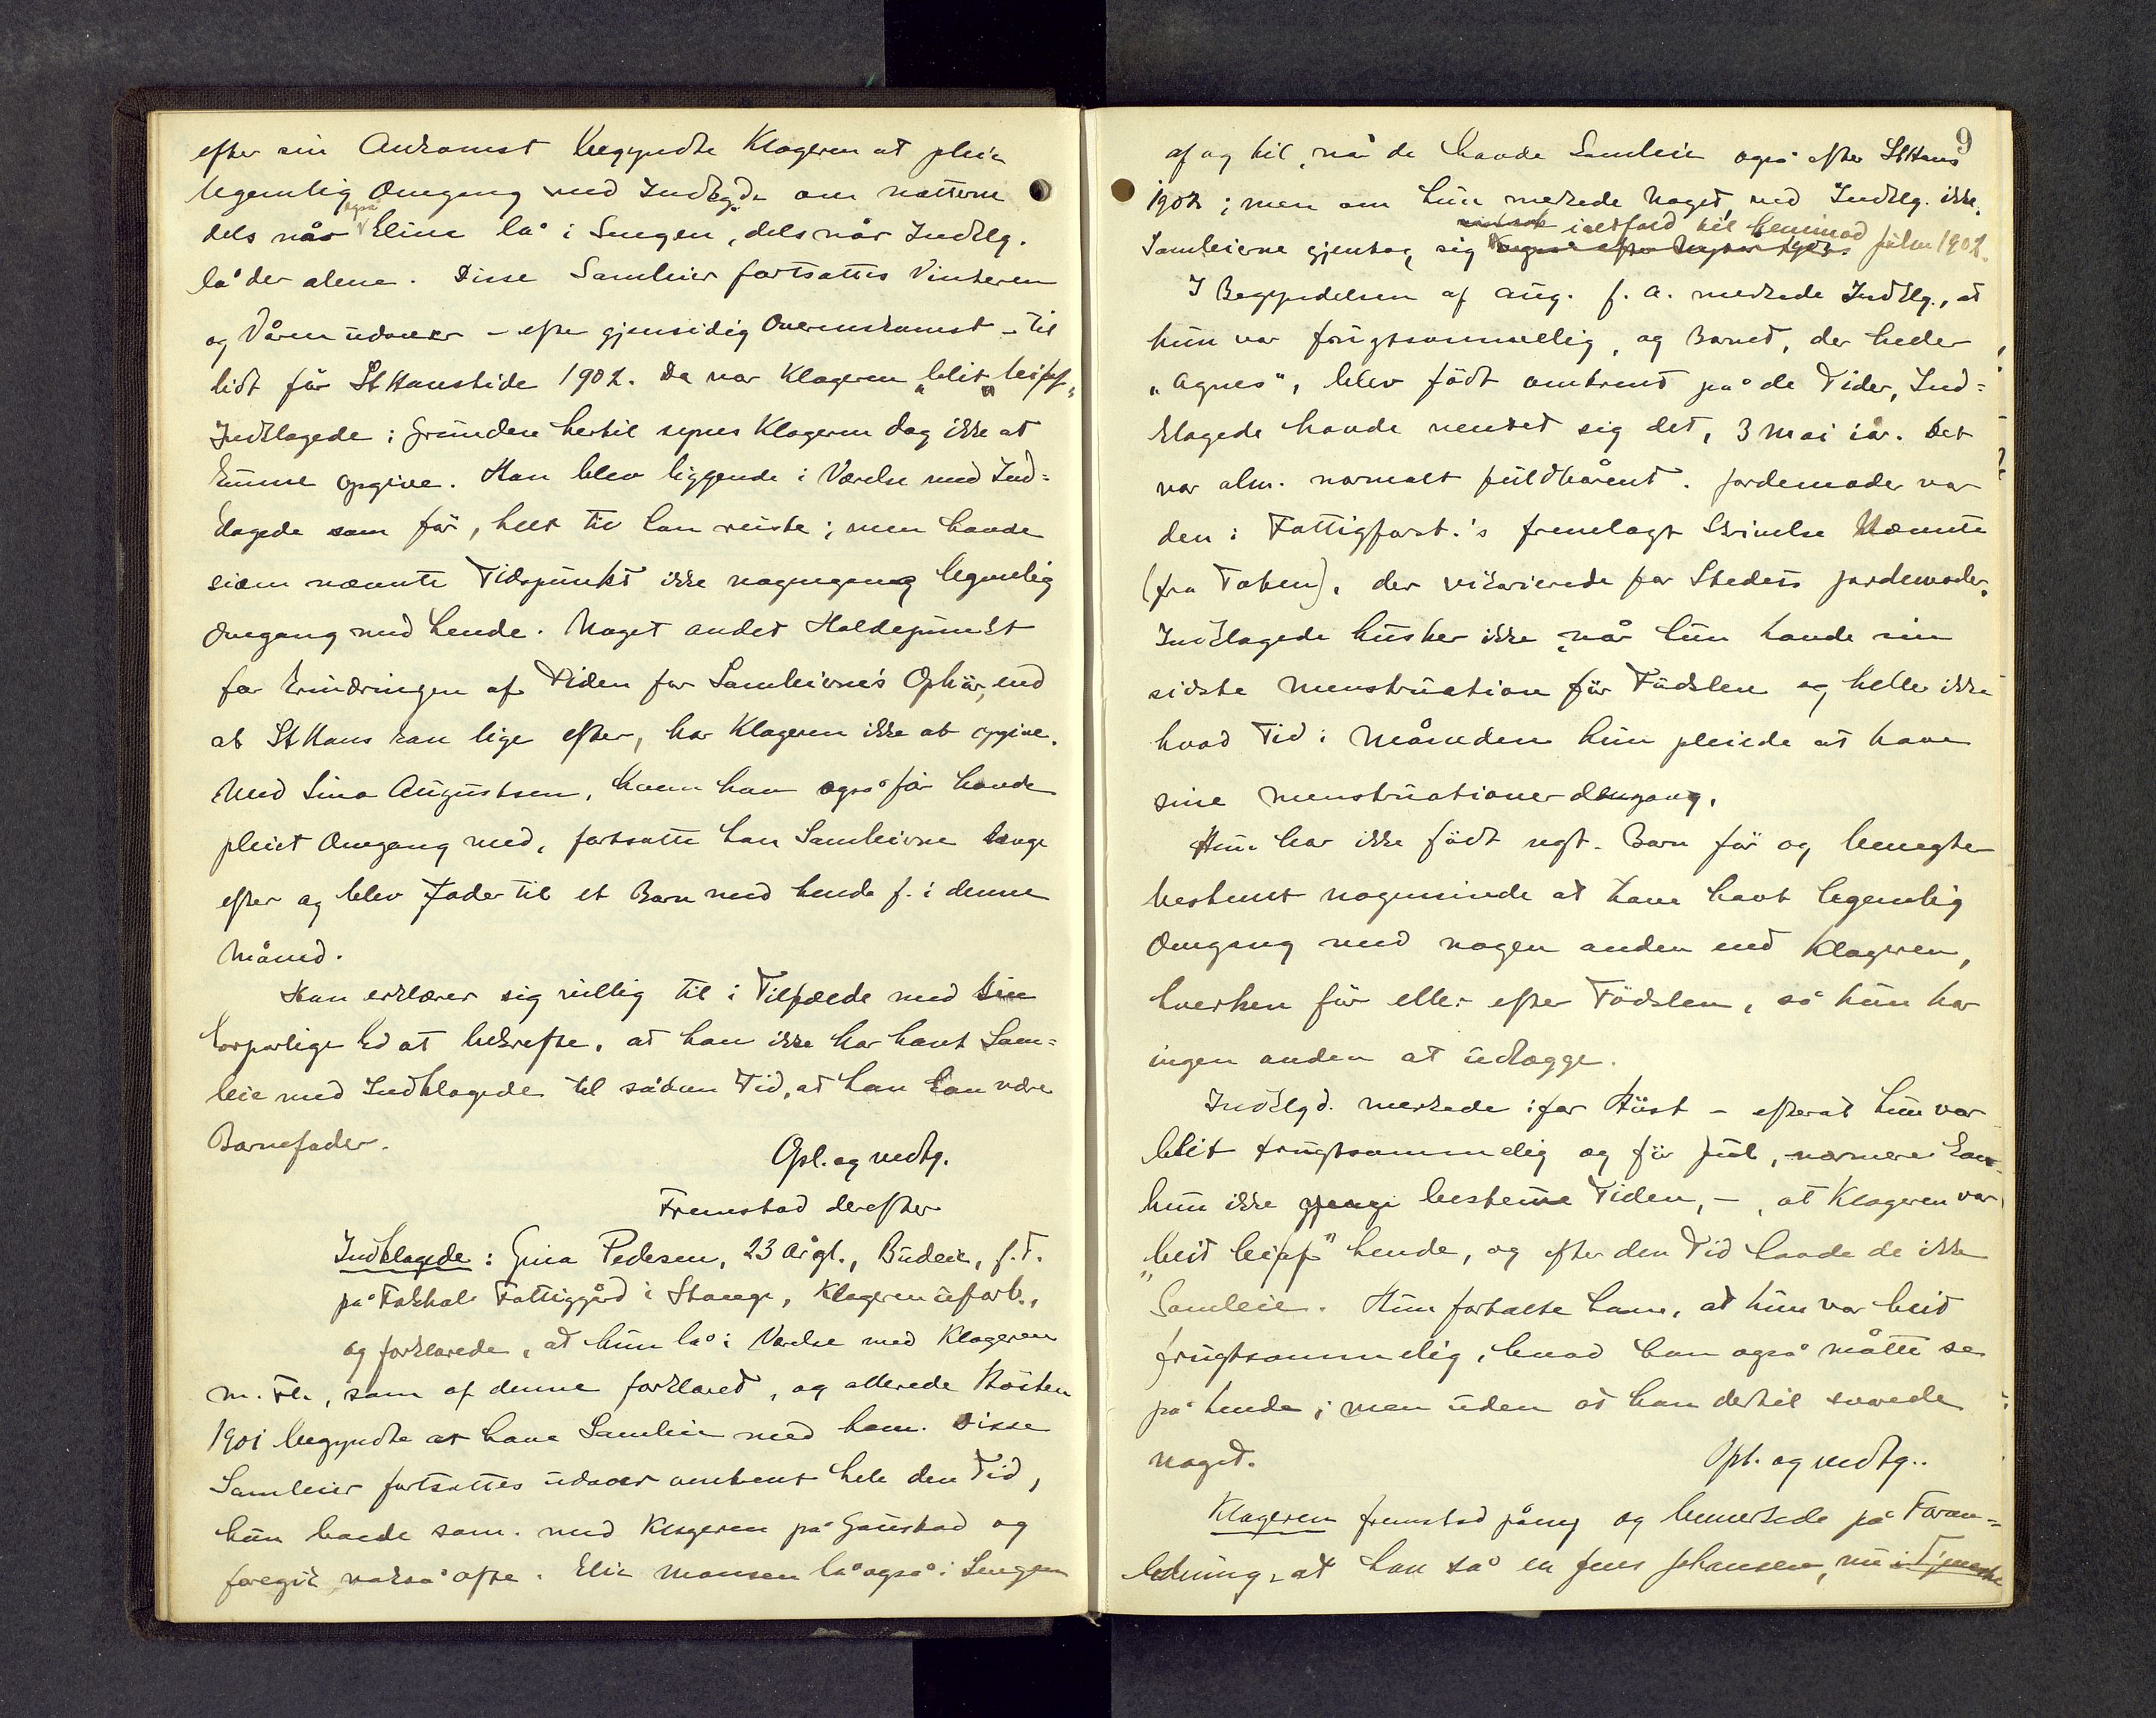 efter sin Ankomst begyndte Klageren at pleie
legemlig Omgang med Indkgde om nætterne
også
dels når Eline lå i Sengen, dels når Indklg.
lå der alene. Disse Samleier fortsattes Vinteren
og Våren udover - efter gjensidig Overenskomst - til
lidt før St Hanstide 1902. Da var Klageren "blit leipf"
Indklagede; Grunden hertil synes Klageren dog ikke at
kunne opgive. Han blev liggende i Værelse med Ind=
klagede som før, helt til han reiste; men havde
siden nævnte Tidspunkt ikke nogengang legemlig
Omgang med hende. Noget andet Holdepunkt
for Erindringen af Tiden for Samleiernes Ophør, end
at St Hans kom lige efter, har Klageren ikke at opgive.
Med Lina Augustsen, hvem han også før havde
pleiet Omgang med, fortsatte han Samleierne længe
efter og blev Fader til et Barn med hende f. i denne
Måned.
Han erklærer sig villig til i Tilfælde med Sin
korporlige Ed at bekræfte, at han ikke har havt Sam=
leie med Indklagede til sådan Tid, at han kan være
Barnefader.
Opl. og vedtg.
Fremstod derefter
Indklagede: Gina Pedersen, 23 år gl., Budeie, f. T.
på Fattiggård i Stange, Klageren ubesl.,
og forklarede, at hun lå i Værelse med Klageren
m. Fl., som af denne forklaret, og allerede Høsten
1901 begyndte at have Samleie med ham. Disse
Samleier fortsattes udover omtrent hele den Tid,
hun boede sam. med Klageren på Gaustad og
foregik nokså ofte. Elin Monsen lå også i Sengen
9
af og til, når de havde Samleie også efter St Hans
1902; men om hun merkede noget, ved Indklg. ikke.
ialfald til henimod Julen 1902.
Samleierne gjentog sig
I Begyndelsen af Aug. f. A. merkede Indklg., at
hun var frugtsommelig, og Barnet, der heder
"Agnes", blev født omtrent på de Tider, Ind=
klagede havde ventet sig det, 3 Mai iår. Det
var alm. normalt fuldbårent. Jordemoder var
den i Fattigforst.'s fremlagt Skrivelse Nævnte
(fra Toten), der vikarierede for Stedets Jordemoder.
Indklagede husker ikke, når hun havde sin
sidste Menstruation før Fødslen og heller ikke
hvad Tid i Måneden hun pleiede at have
sine Menstruationer dengang.
Hun har ikke født ugt. Barn før og benegter
bestemt nogensinde at have havt legemlig
Omgang med nogen anden end Klageren,
hverken før eller efter Fødslen, så hun har
ingen anden at udlægge.
Indklgd. merkede ifor Høst - efterat hun var
blit frugtsommelig og før Jul, nærmere kan
hun ikke bestemme Tiden, -, at Klageren var
"bleit leipf" hende, og efter den Tid havde de ikke
Samleie. Hun fortalte ham, at hun var bleit
frugtsommelig, hvad han også måtte se
på hende; men uden at han dertil svarede
noget.
Opl. og vedtg..
Klageren fremstod påny og bemerkede på Foran=
ledning, at han så en Jens Johansen, nu i Tjeneste